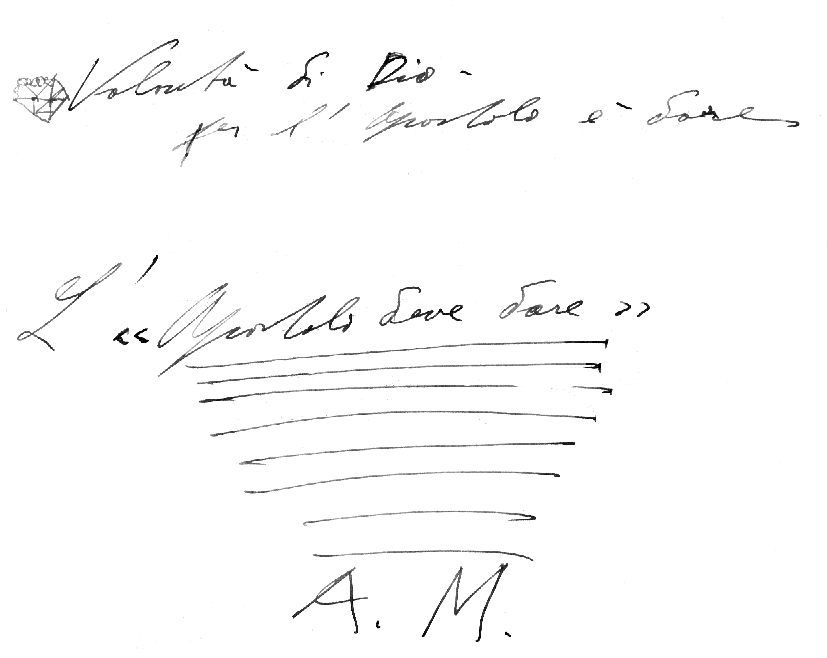 Volontà di Dio -
per l'Apostolo è dare
L' «Apostolo deve dare»
A. M.